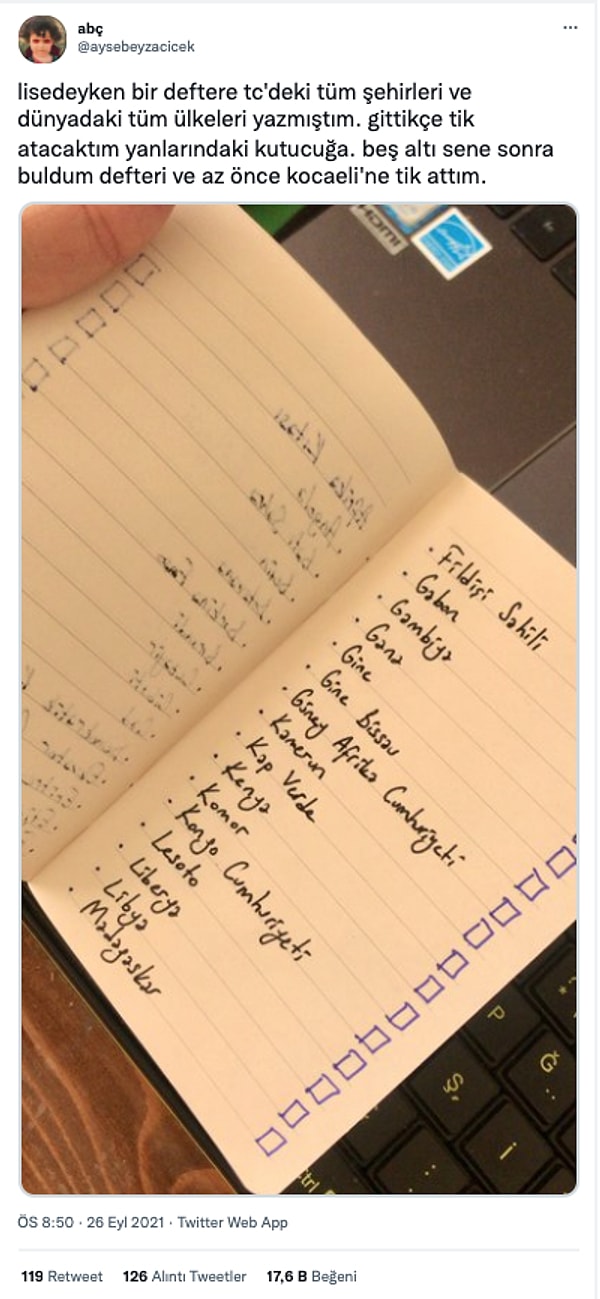 abç
@aysebeyzacicek
lisedeyken bir deftere tc'deki tüm şehirleri ve
dünyadaki tüm ülkeleri yazmıştım. gittikçe tik
atacaktım yanlarındaki kutucuğa. beş altı sene sonra
buldum defteri ve az önce kocaeli'ne tik attım.
HDMI
• Fildişi Sahili
• Gabon
• Gambiya
• Gana
• Gine
• Gine Bissau
• Güney Afrika Cumhuriyeti
• Kamerun
• Kap Verde
• Kenya
• Komor
• Kongo Cumhuriyeti
• Lesoto
• Liberya
• Libya
• Madagaskar
P
Ğ
Ş
İ
ÖS 8:50 · 26 Eyl 2021 · Twitter Web App
119 Retweet 126 Alıntı Tweetler 17,6 B Beğeni